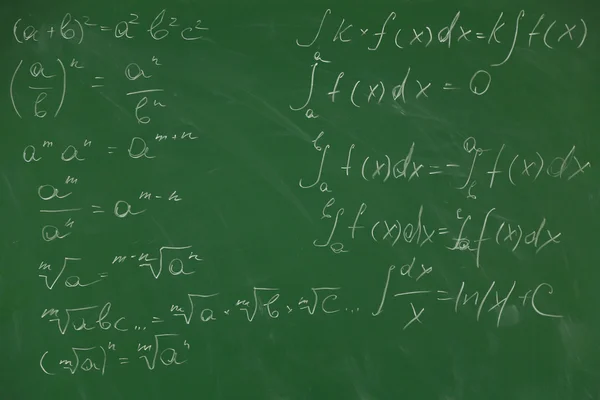 (a+b)² = a² b² c²
(a/b)ⁿ = aⁿ/bⁿ
aᵐ aⁿ = aᵐ⁺ⁿ
aᵐ/aⁿ = aᵐ⁻ⁿ
ᵐ√a = ᵐ⁻ⁿ√aⁿ
ᵐ√abc... = ᵐ√a · ᵐ√b · ᵐ√c ...
(ᵐ√a)ⁿ = ᵐ√aⁿ
∫ K·f(x)dx = K∫f(x)
∫ₐᵃ f(x)dx = 0
∫ₐᵇ f(x)dx = -∫_b^a f(x)dx
∫ₐᵇ f(x)dx = ∫ f(x)dx
∫ dx/x = ln|x|+C